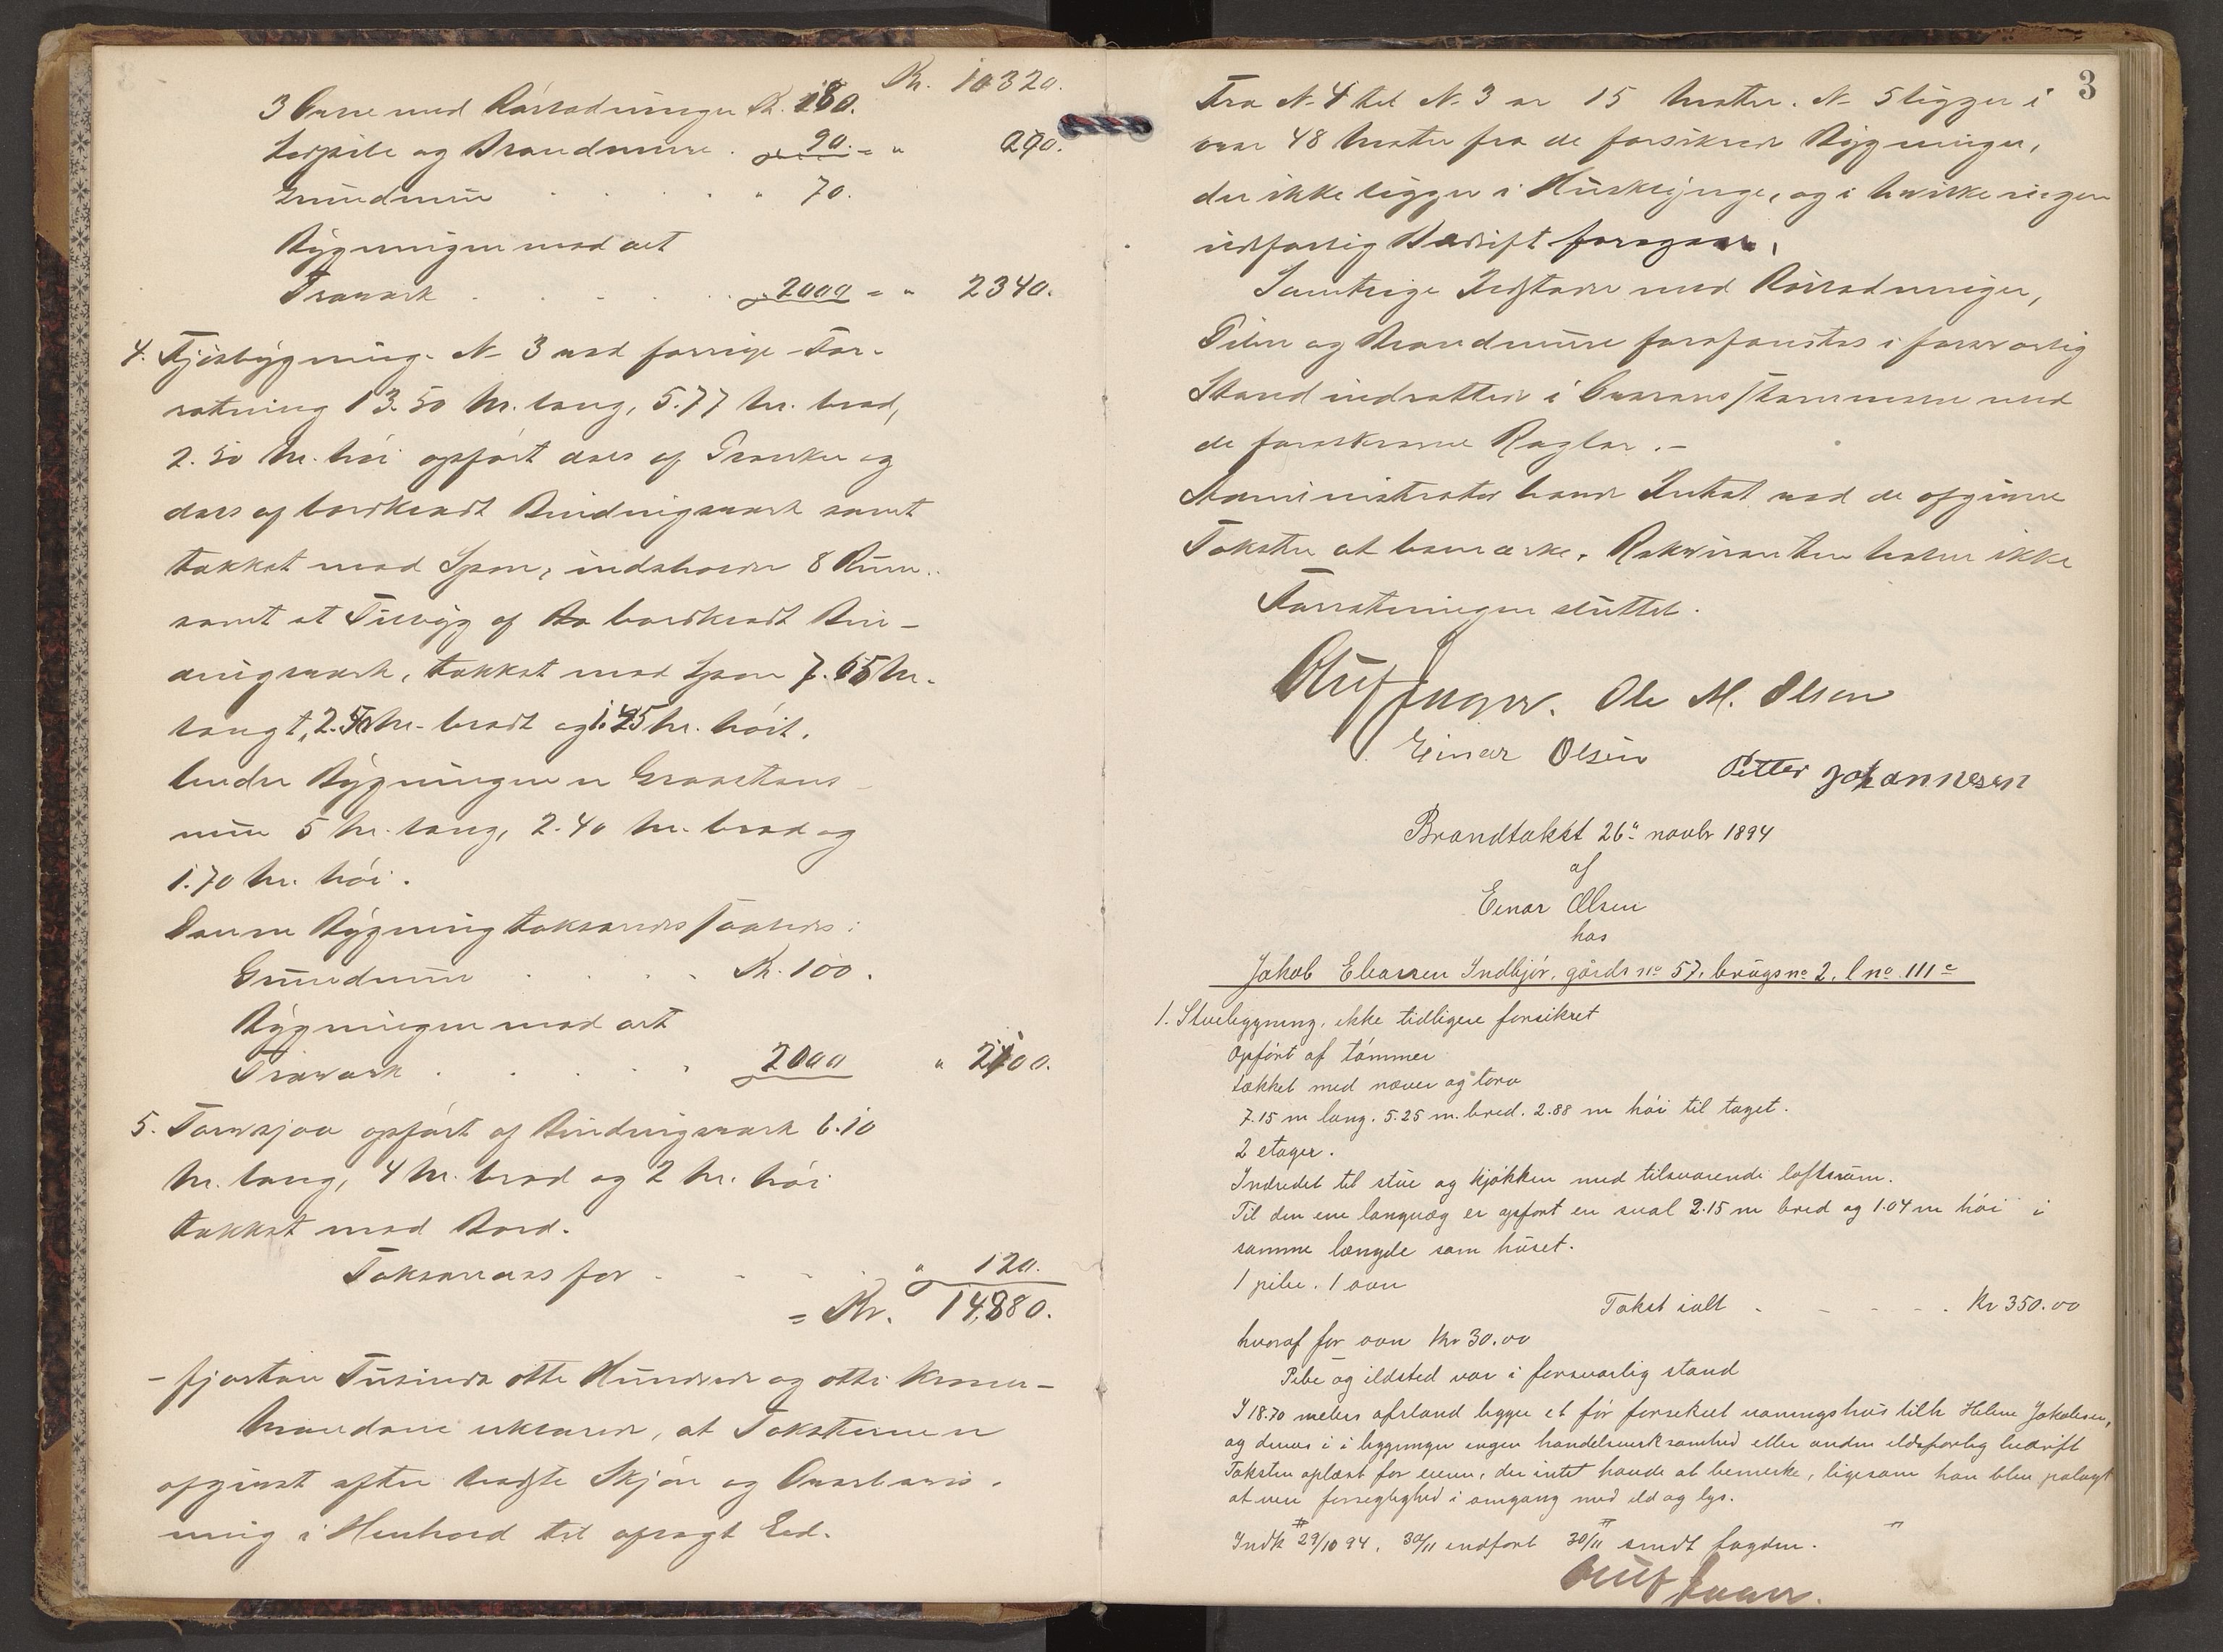 Kr. 10320.
3 Ovne med Rørledninger Kr. 180.
Torpibe og Brandmure . 90. = " 290.
Grundmur . . . . " 70.
Bygningen med alt
Træværk . . . . " 2000 = " 2340.
4. Fjøsbygning. N- 3 ved forrige For-
retning 13.50 M. lang, 5.77 M. bred,
2.50 M. høi opført dels af Planker og
dels af bordklædt Bindingsværk samt
tækket med Spon, indeholder 8 Rum.
samt et Tilbyg af bordklædt Bin-
dingsværk, tækket med Spon 7.65 M.
langt, 2.50 M. bredt og 1.45 M. høit.
Under Bygningen er Graastens
mur 5 M. lang, 2.40 M. bred og
1.70 M. høi.
Denne Bygning takseredes saaledes:
Grundmur . . . . Kr. 100.
Bygningen med alt
Træværk . . . . . 2000 " 2100.
5. Tørvsjaa opført af Bindingsværk 6.10
M. lang, 4 M. bred og 2 M. høi
tækket med Bord.
Takseredes for - - - . " 120.
= Kr. 14,880.
- fjorten Tusinde otte Hundrede og otti Kroner -
Mændene erklærede, at Taksterne er
afgivet efter bedste Skjøn og Overbevis-
ning i Henhold til aflagt Ed.
3
Fra N- 4 til N- 3 er 15 Meter. N- 5 ligger i
over 48 Meter fra de forsikrede Bygninger,
der ikke ligger i Husklynge, og i hvilke ingen
ildfarlig Bedrift foregaar.
Samtlige Ildsteder med Rørledninger,
Piber og Brandmure forefandtes i forsvarlig
Stand indrettede i Overensstemmelse med
de foreskrevne Regler. -
Administrator havde Intet ved de afgivne
Takster at bemærke. Rekvirenten heller ikke
Forretningen sluttet.
Ole M. Olsen
Einar Olsen Petter Johannesen
Brandtakst 26de novbr 1894
af
Einar Olsen
hos
Jakob Eliassen Indbjør, gårds no 57, brugs no 2, l no 111c
1. Stuebygning, ikke tidligere forsikret
Opført af tømmer
tækket med næver og torv
7.15 m lang. 5.25 m. bred. 2.88 m høi til taget.
2 etager.
Indredet til stue og kjøkken med tilsvarende loftsrum.
Til den ene langvæg er opført en sval 2.15 m bred og 1.04 m høi i
samme længde som huset.
1 pibe. 1 ovn
Takst ialt - - - - . Kr 350.00
hvoraf for ovn Kr 30.00
Pibe og ildsted var i forsvarlig stand
I 18.70 meters afstand ligger et før forsikret vaaningshus tilh Helene Jakobsen,
og drives i i bygninger ingen handelsvirksomhed eller anden ildsfarlig bedrift
Taksten oplæst for eieren, der intet havde at bemerke, ligesom han blev paalagt
at vise forsigtighed i omgang med ild og lys.
Indk 29/10 94. 30/11 indført 30/11 sendt fogden.